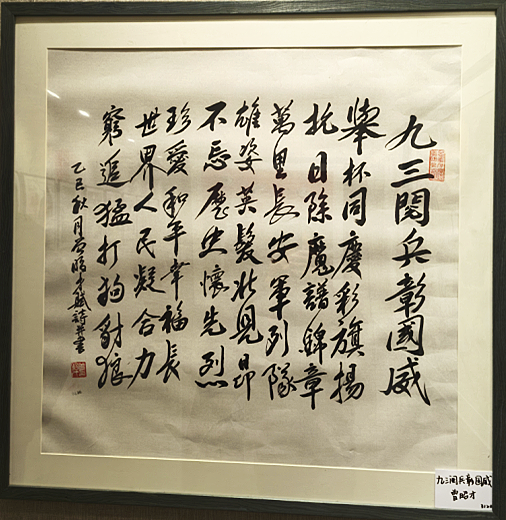 九三閱兵彰國威
舉杯同慶彩旗揚
抗日除魔譜錦章
萬里長安軍列隊
雄姿英發壯見昂
不忘歷史懷先烈
珍愛和平幸福長
世界人民凝合力
窮追猛打豺狼
乙巳秋月曹昭才賦詩并書
九三阅兵彰国威
曹昭才